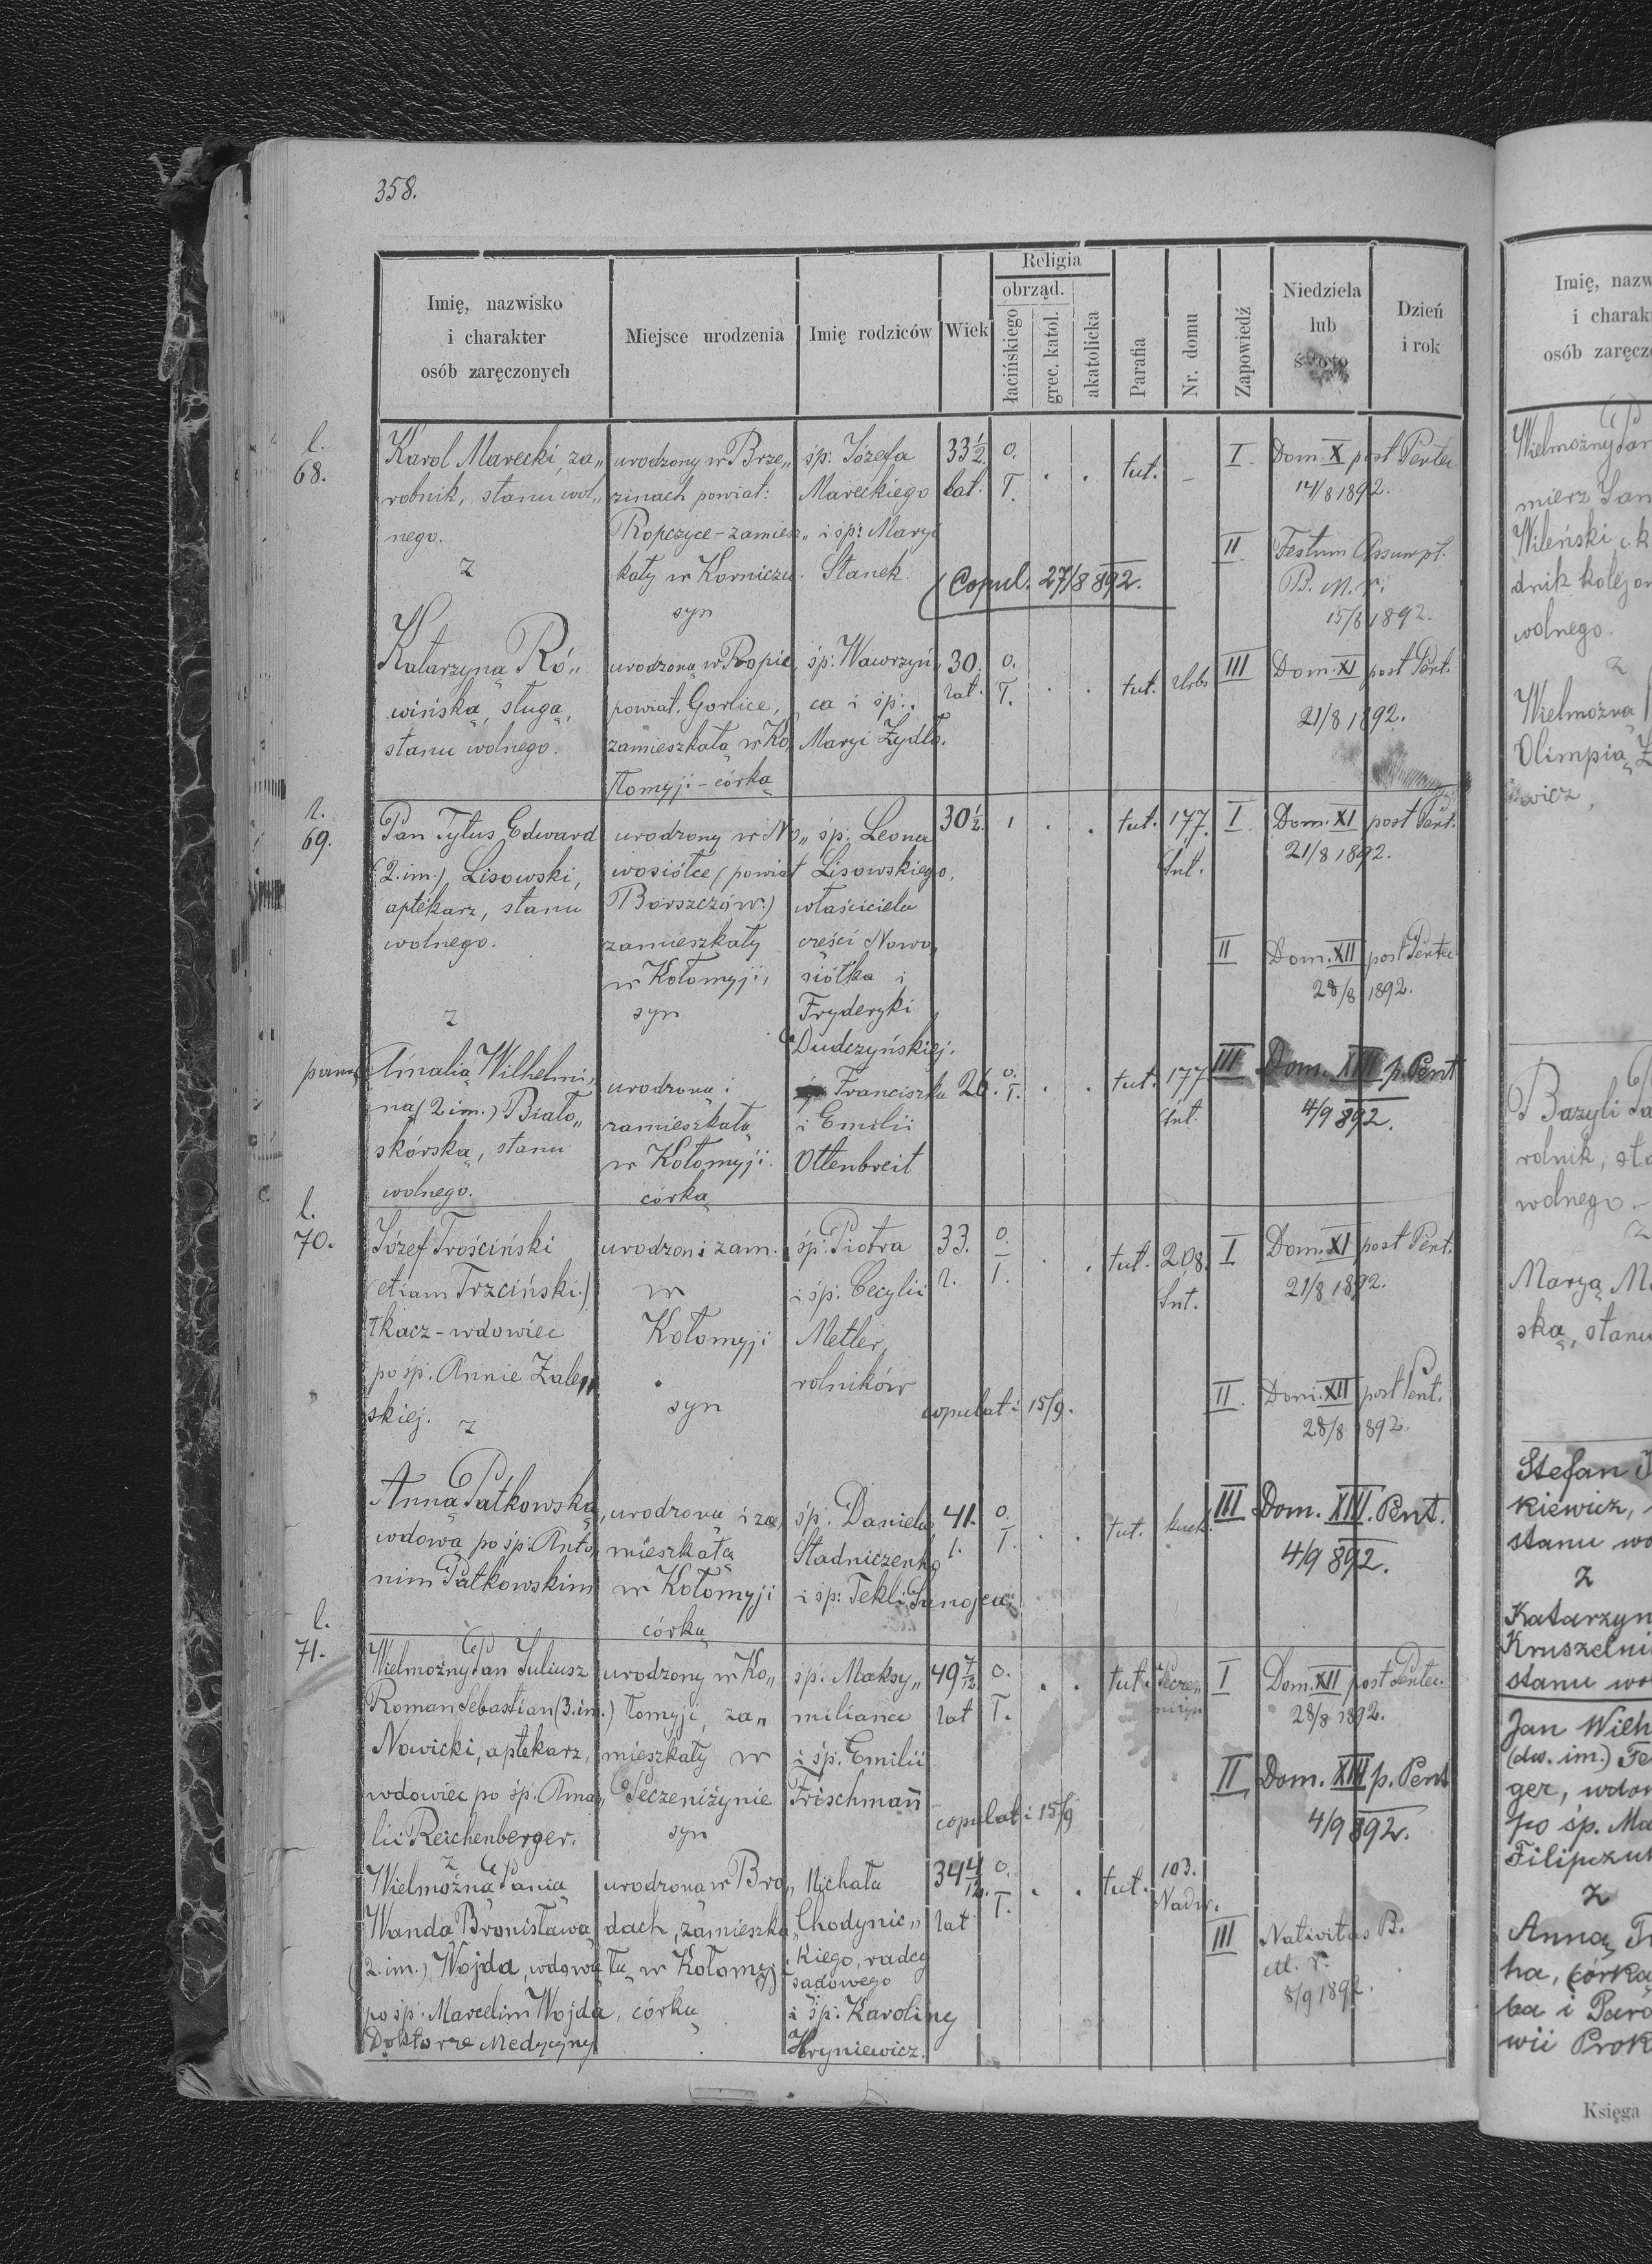 358.
Imię, nazwisko
i charakter
osób zaręczonych
Miejsce urodzenia
Imię rodziców
Wiek
Religia
obrząd.
łacińskiego
grec. katol.
akatolicka
Parafia
Nr. domu
Zapowiedź
Niedziela
lub
święto
Dzień
i rok
l.
68.
Karol Marecki, za„
robnik, stanu wol„
nego.
z
urodzony w Brze„
zinach powiat:
Ropczyce - zamiesz„
kały w Korniczu.
syn
śp: Józefa
Mareckiego
i śp: Maryi
Stanek.
33 1/2
lat.
o.
T.
tut.
I. Dom. X post Pentec
14/8 1892.
II Festum Assumpt.
B. M. V.
15/8 1892.
Copul. 27/8 892.
Katarzyna Ró„
wińska, sługa,
stanu wolnego.
urodzona w Ropie
powiat. Gorlice,
zamieszkała w Ko„
łomyji - córka
śp: Wawrzyń„
ca i śp:
Maryi Żydło.
30.
lat.
o.
T.
tut.
III Dom. XI post Pent.
21/8 1892.
69.
Pan Tytus Edward
(2. im.) Lisowski,
aptékarz, stanu
wolnego.
z
urodzony w No„
wosiółce (powiat
Borszczów.)
zamieszkały
w Kołomyji,
syn
śp: Leona
Lisowskiego,
właściciela
części Nowo„
siółka i
Fryderyki
Dudczyńskiej.
30 1/2.
tut.
177.
Śnt.
I Dom. XI post Pent.
21/8 1892.
II Dom. XII post Pentec
28/8 1892.
panna
Amalia Wilhelmi„
na (2 im.) Biało„
skórska, stanu
wolnego.
urodzona i
zamieszkała
w Kołomyji.
córka
Franciszka
i Emilii
Ottenbreit
26.
o.
T.
tut.
177
Śnt.
III Dom. XIII p. Pent
4/9 892.
l.
70.
Józef Trościński
(etiam Trzciński.)
tkacz - wdowiec
po śp. Annie Zale„
skiej.
z
urodzon i zam.
w
Kołomyji
syn
śp: Piotra
i śp: Cecylii
Metler,
rolników
33.
o.
T.
tut.
208.
Śnt.
I Dom. XI post Pent.
21/8 1892.
II. Dom. XII post Pent.
28/8 1892.
copulati 15/9.
Anna Patkowska,
wdowa po śp: Anto„
nim Patkowskim
urodzona i za„
mieszkała
w Kołomyji
córka
śp: Daniela
Stadniczenko
i śp: Tekli
41.
l.
o.
T.
tut.
III Dom. XIII. Pent.
4/9 892.
l.
71.
Wielmożny Pan Juliusz
Roman Sebastian (3. im.)
Nowicki, aptekarz,
wdowiec po śp. Ama„
lii Reichenberger.
z
urodzony w Ko„
łomyji, za„
mieszkały w
Peczeniżynie
syn
śp: Maksy„
miliana
i śp. Emilii
Frischmann
49 7/12
lat
o.
T.
tut.
Peczen
niżyn
I Dom. XII post Pentec.
28/8 1892.
II Dom. XIII p. Pent
4/9 892.
copulati 15/9
Wielmożna Pania
Wanda Bronisława
(2. im.) Wojda, wdowa
po śp: Marcelim Wojda,
Doktorze Medycyny
urodzona w Bro„
dach, zamieszka„
ła w Kołomyji
córka
Michała
Chodynic„
kiego, radcy
sądowego
i śp: Karoliny
Hryniewicz.
34 4/12.
lat
o.
T.
tut.
103.
Nadw.
III Nativitas B.
M. V.
8/9 1892.
Imię, nazw
i charak
osób zaręcz
Wielmożny Pan
mierz
Wileński c. k
dnik kolejow
wolnego.
z
Wielmożna
Olimpia
wicz,
Bazyli
rolnik, sta
wolnego.
Marya
ska, stanu
Stefan
kiewicz,
stanu wo
z
Katarzyn
Kruszelni
stanu wo
Jan Wilh
(dw. im.) Fe
ger, wdow
po śp. Ma
Filipczuk
z
Anna
ha, córka
ba i Para
wii Prok
Księga